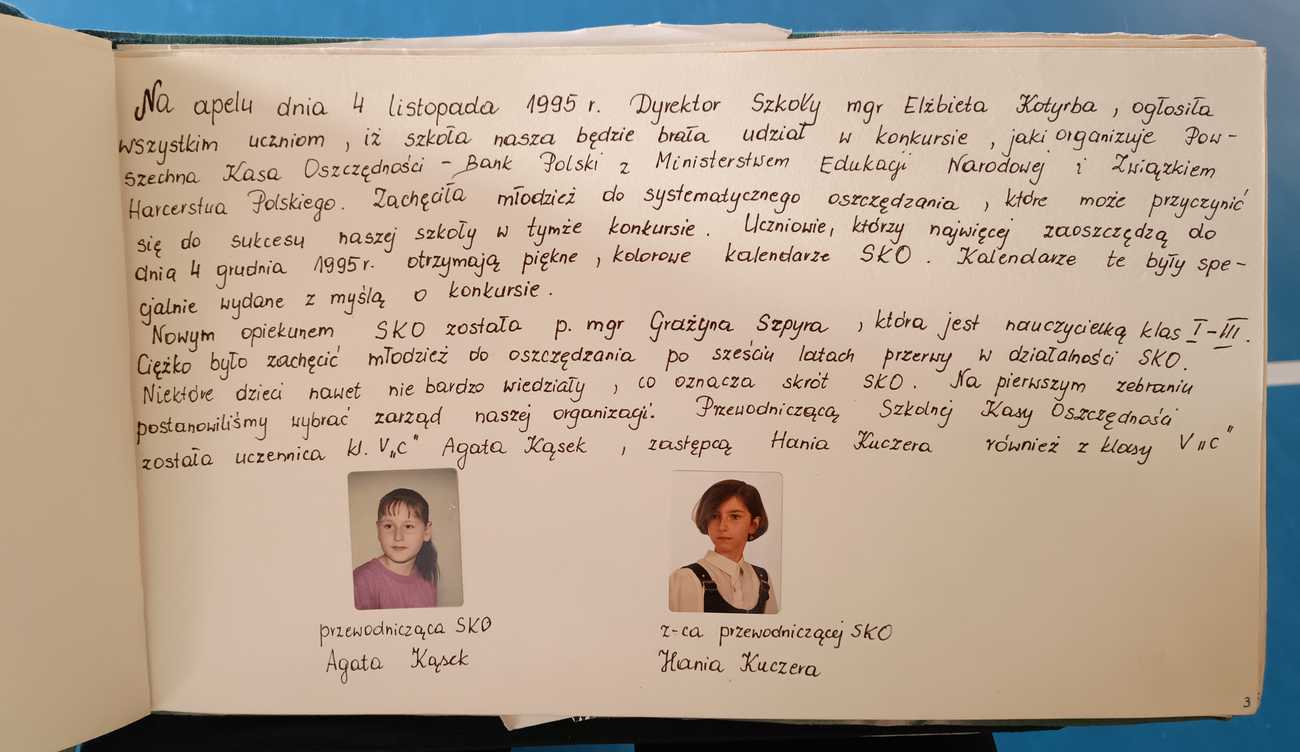 Na apelu dnia 4 listopada 1995 r. Dyrektor Szkoły mgr Elżbieta Kotyrba, ogłosiła
wszystkim uczniom, iż szkoła nasza będzie brała udział w konkursie, jaki organizuje Pow-
szechna Kasa Oszczędności - Bank Polski z Ministerstwem Edukacji Narodowej i Związkiem
Harcerstwa Polskiego. Zachęciła młodzież do systematycznego oszczędzania, które może przyczynić
się do sukcesu naszej szkoły w tymże konkursie. Uczniowie, którzy najwięcej zaoszczędzą do
dnia 4 grudnia 1995 r. otrzymają piękne, kolorowe kalendarze SKO. Kalendarze te były spe-
cjalnie wydane z myślą o konkursie.
Nowym opiekunem SKO została p. mgr Grażyna Szpyra, która jest nauczycielką klas I-III.
Ciężko było zachęcić młodzież do oszczędzania po sześciu latach przerwy w działalności SKO.
Niektóre dzieci nawet nie bardzo wiedziały, co oznacza skrót SKO. Na pierwszym zebraniu
postanowiliśmy wybrać zarząd naszej organizacji. Przewodniczącą Szkolnej Kasy Oszczędności
została uczennica kl. V„c" Agata Kąsek, zastępcą Hania Kuczera również z klasy V„c"
przewodnicząca SKO
Agata Kąsek
z-ca przewodniczącej SKO
Hania Kuczera
3